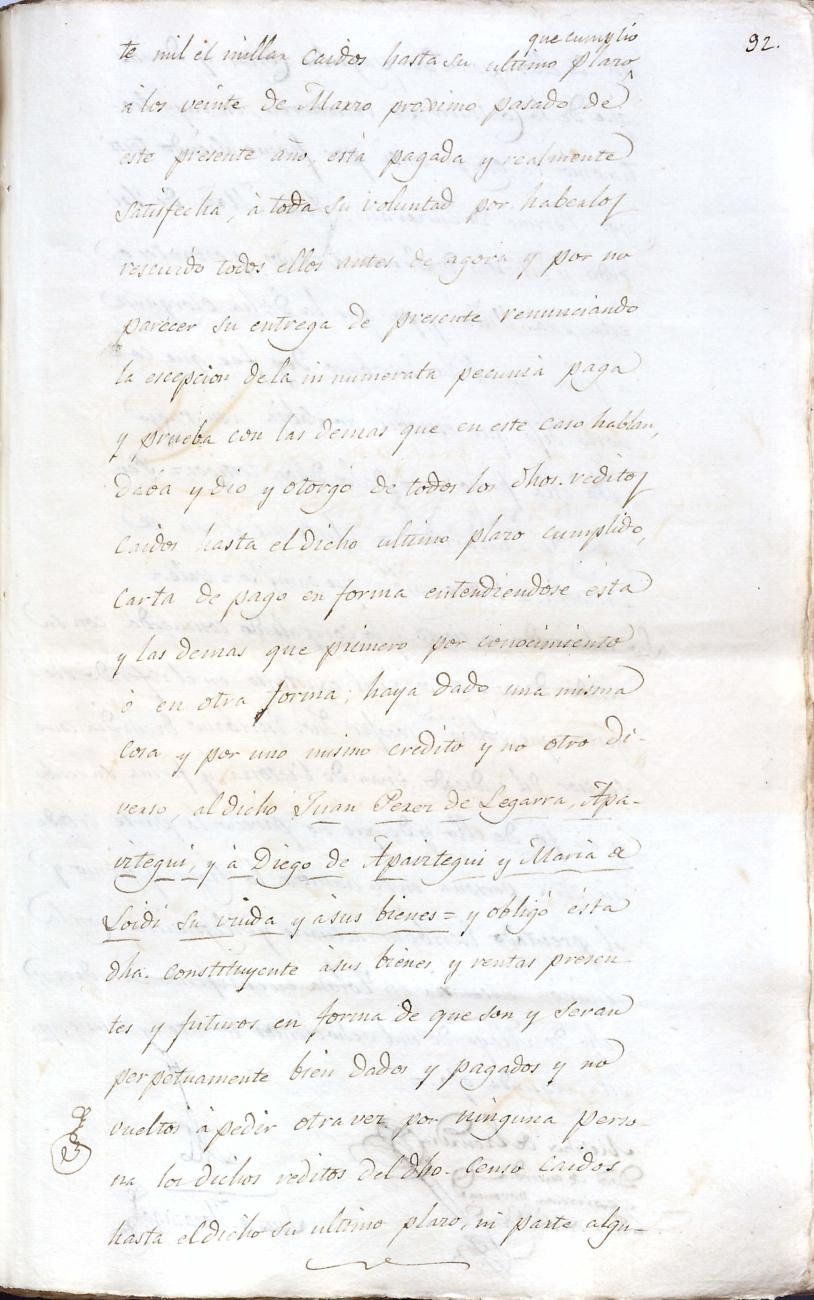 92.
que cumplio
te mil el millar caidos hasta su ultimo plazo
à los veinte de Marzo proximo pasado de
este presente año, está pagada y realmente
satisfecha, à toda su voluntad por haberlos
rescuido todos ellos antes de agora y por no
parecer su entrega de presente renunciando
la escepcion dela in numerata pecunia paga
y prueba con las demas que en este caso hablan,
daba y dio y otorgó de todos los dhos. reditos
caidos hasta el dicho ultimo plazo cumplido,
carta de pago en forma entendiendose ésta
y las demas que primero por conocimiento
ó en otra forma; haya dado una misma
cosa y por uno mismo credito y no otro di-
verso, al dicho Juan Perez de Legarra, Apa-
iztegui, y à Diego de Apaiztegui y Maria de
Loidi su viuda y à sus bienes = y obligó ésta
dha. constituyente à sus bienes, y rentas presen-
tes y futuros en forma de que son y seran
perpetuamente bien dados y pagados y no
vueltos à pedir otra vez por ninguna perso-
na los dichos reditos del dho. censo caidos
hasta el dicho su ultimo plazo, ni parte algu-